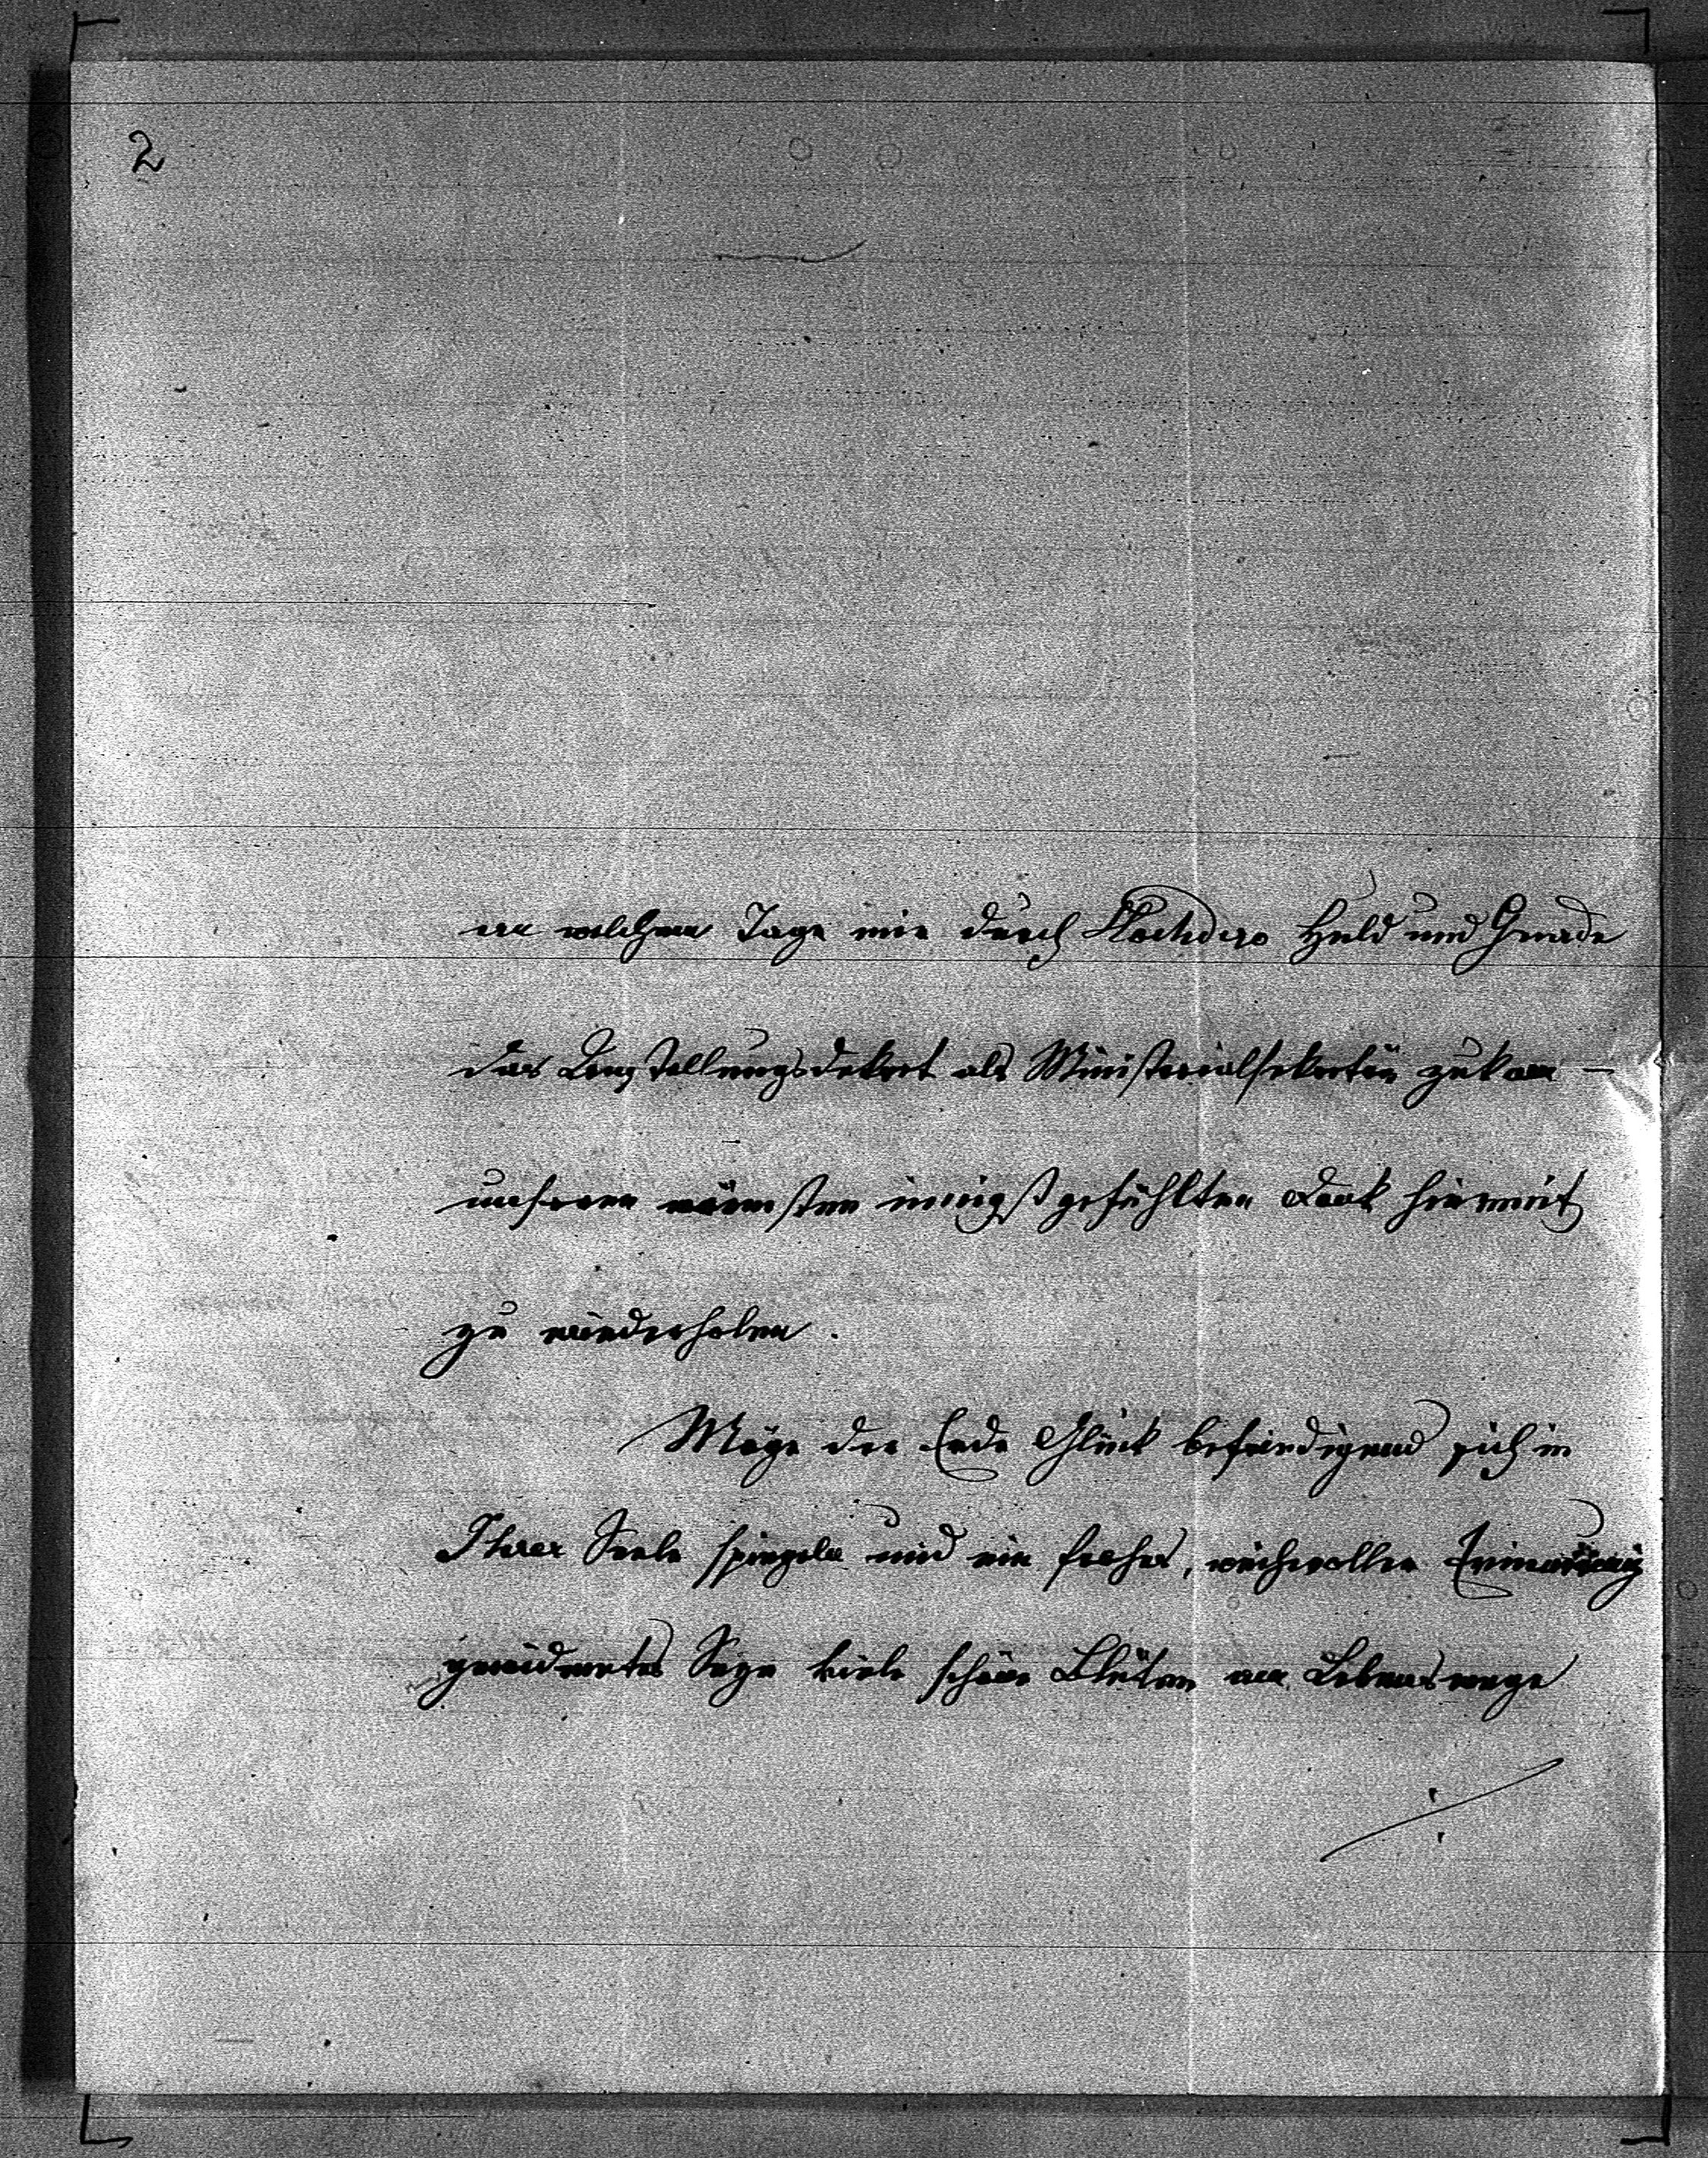 2
an welchem Tage mir durch Hochdero Huld und Gnade
das Anstellungsdekret als Ministerialsekretär zukam –
unseren wärmsten innigst gefühlten Dank hiermit
zu wiederholen.
Möge der Erde Glück befriedigend sich in
Ihrer Seele spiegeln und ein frohes, weihevoller Erinnerung
gewidmetes viele schöne Blüten am Lebenswege
./.